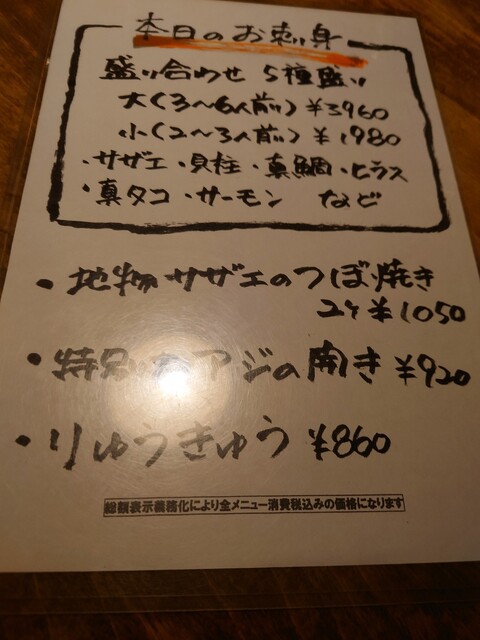 本日のお刺身
盛り合わせ 5種盛り
大(3〜6人前) ¥3960
小(2〜3人前) ¥1980
・サザエ・貝柱・真鯛・ヒラス
・真タコ・サーモン など
・地物サザエのつぼ焼き
2ケ ¥1050
・特別 アジの開き ¥920
・りゅうきゅう ¥860
総額表示義務化により全メニュー消費税込みの価格になります